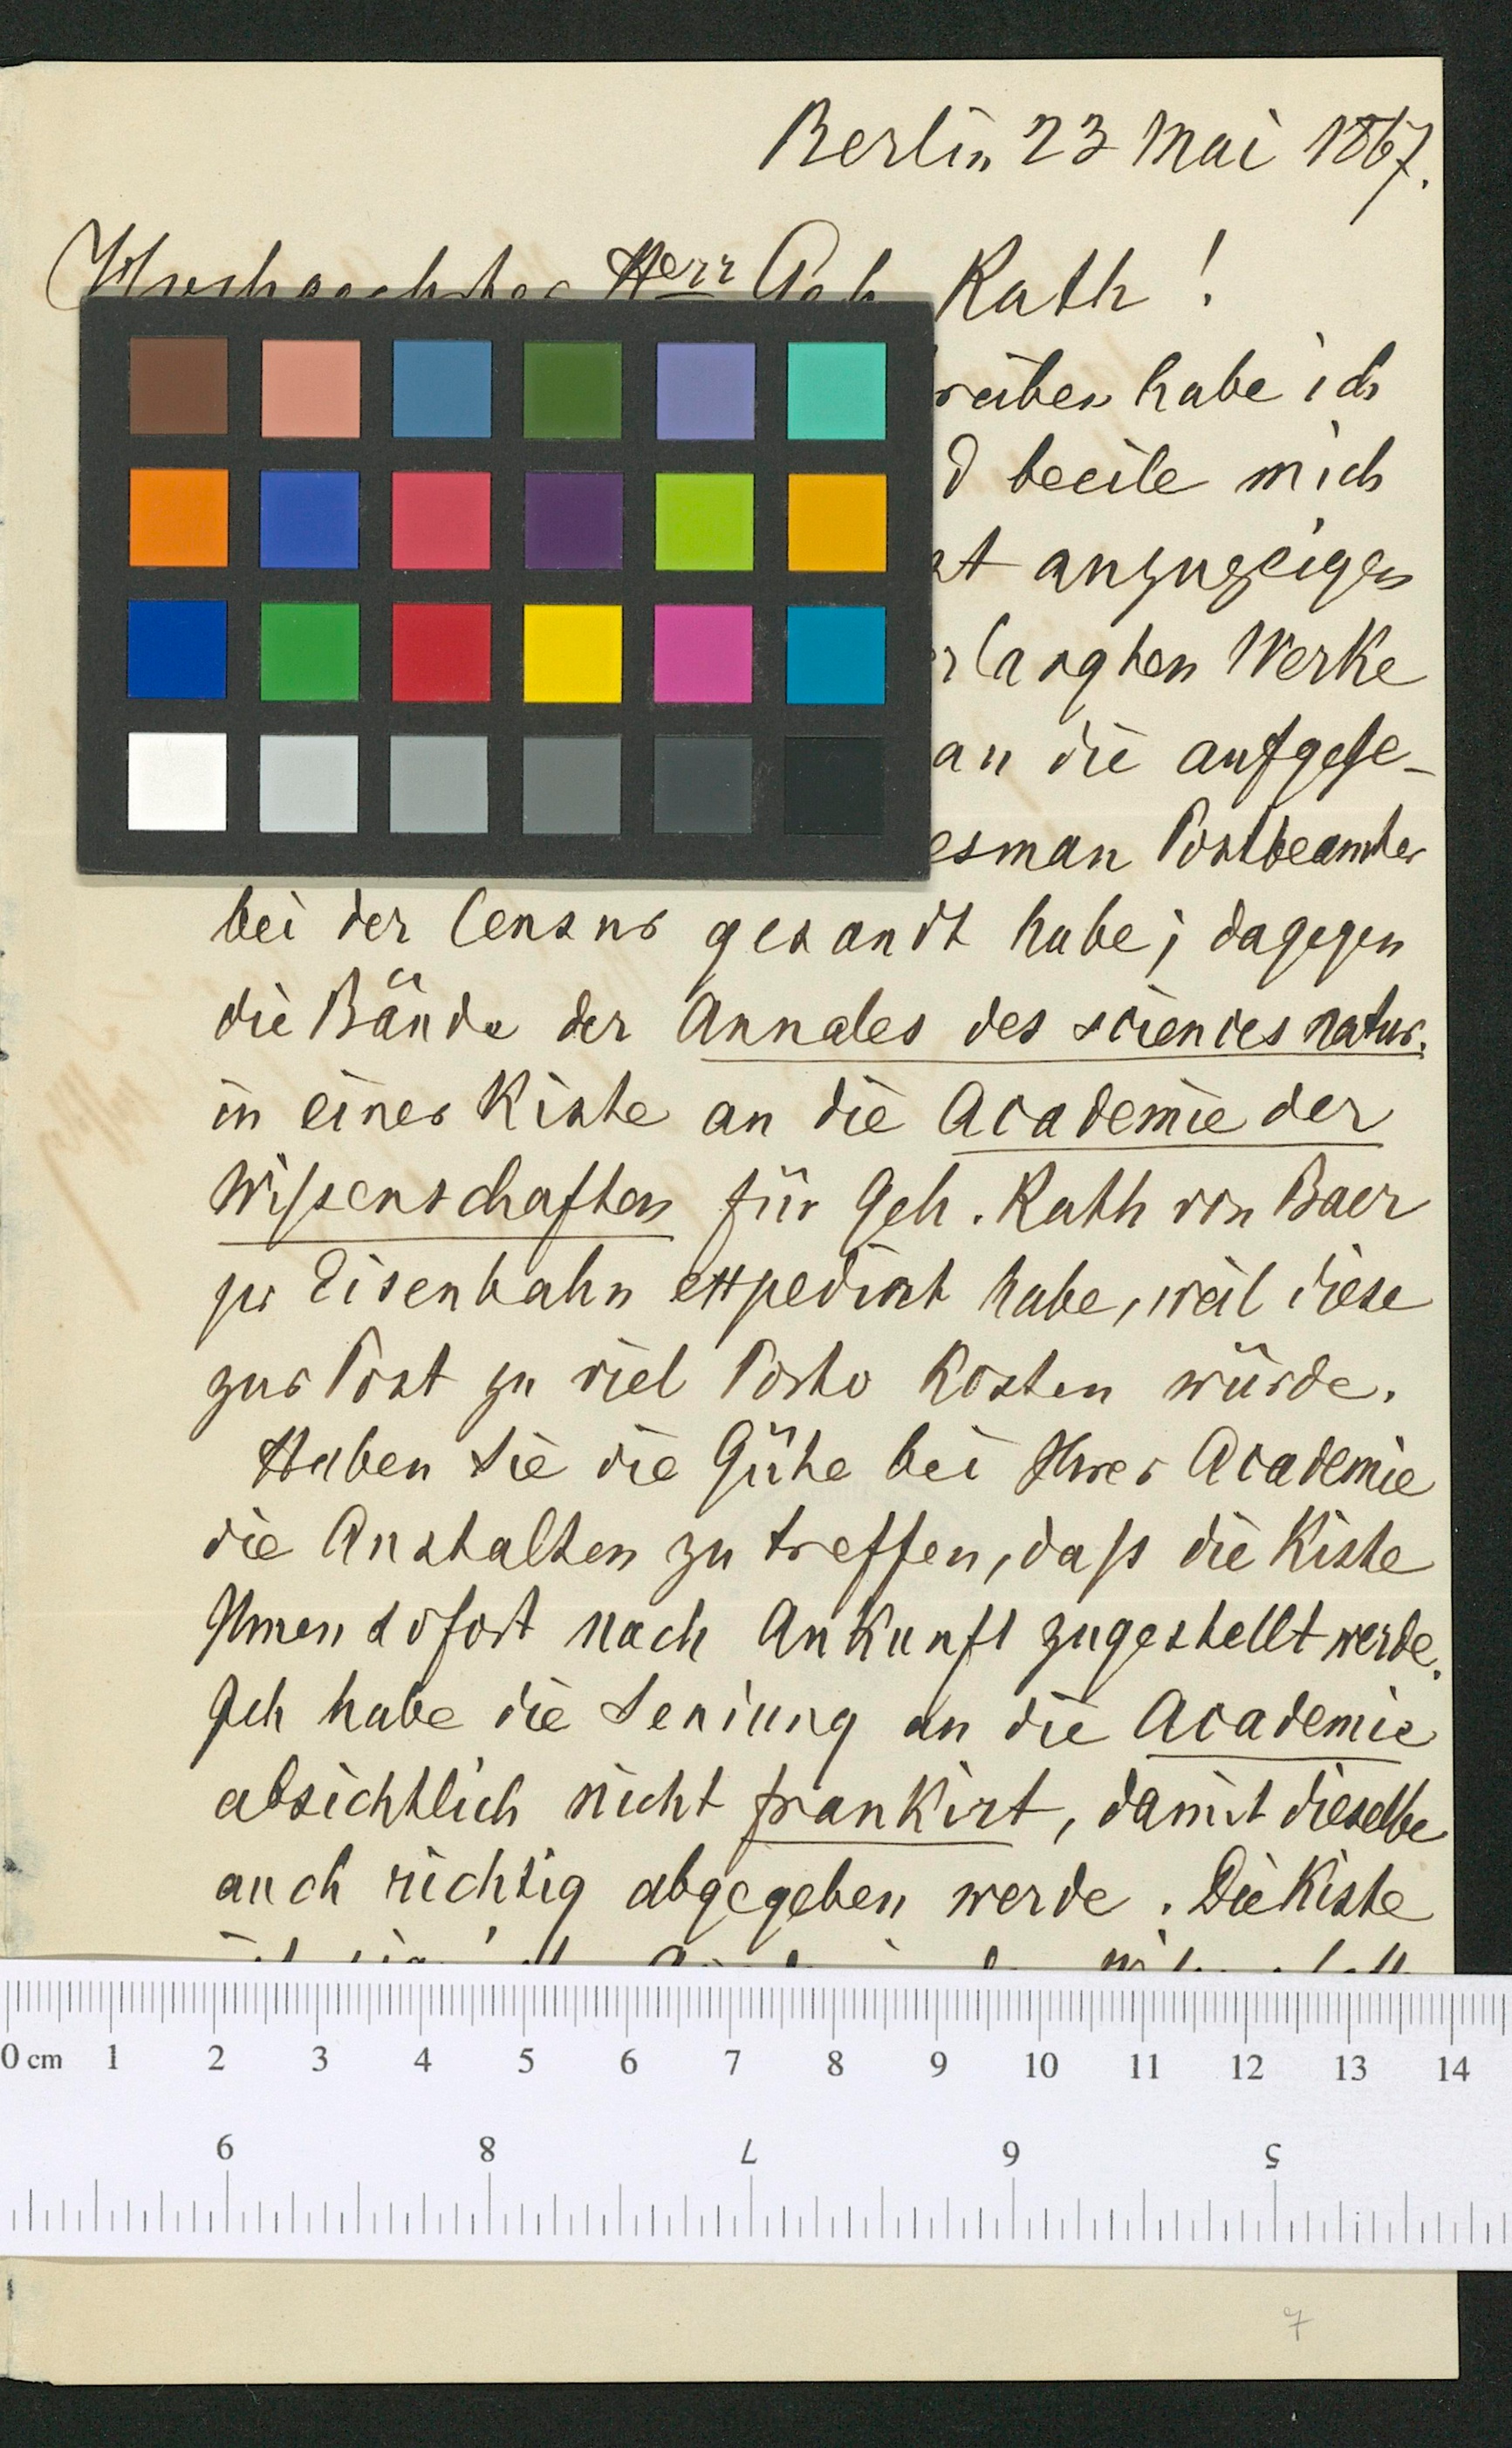 Berlin 23 Mai 1867.
Herr Geh Rath!
habe ich
beeile mich
anzuzeigen
Werke
an die aufgege-
Postbeamter
bei der Censur gesandt habe; dagegen
die Bände der Annales des sciences natur.
in einer Kiste an die Academie der
Wissenschaften für Geh. Rath von Baer
pr Eisenbahn expedirt habe, weil diese
zur Post zu viel Porto kosten würde.
Haben Sie die Güte bei Ihrer Academie
die Anstalten zu treffen, daß die Kiste
Ihnen sofort nach Ankunft zugestellt werde.
Ich habe die Sendung an die Academie
absichtlich nicht frankirt, damit dieselbe
auch richtig abgegeben werde. Die Kiste
0 cm 1 2 3 4 5 6 7 8 9 10 11 12 13 14
9 8 7 6 5
7